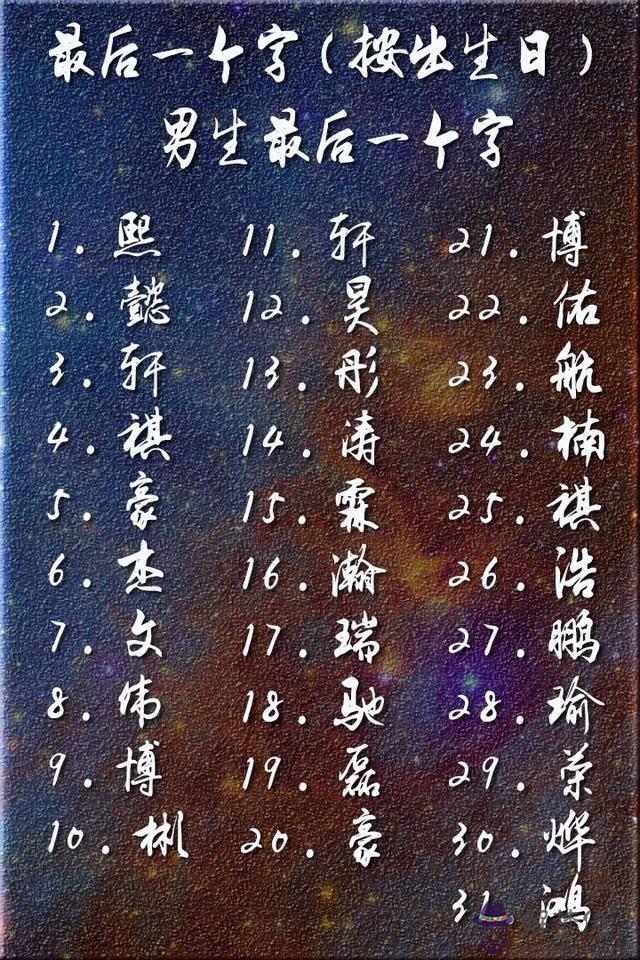 最后一个字(按出生日)
男生最后一个字
1.熙 11.轩 21.博
2.懿 12.昊 22.佑
3.轩 13.彤 23.航
4.祺 14.涛 24.楠
5.豪 15.霖 25.祺
6.杰 16.瀚 26.浩
7.文 17.瑞 27.鹏
8.伟 18.驰 28.瑜
9.博 19.磊 29.荣
10.彬 20.豪 30.烨
31.鸿